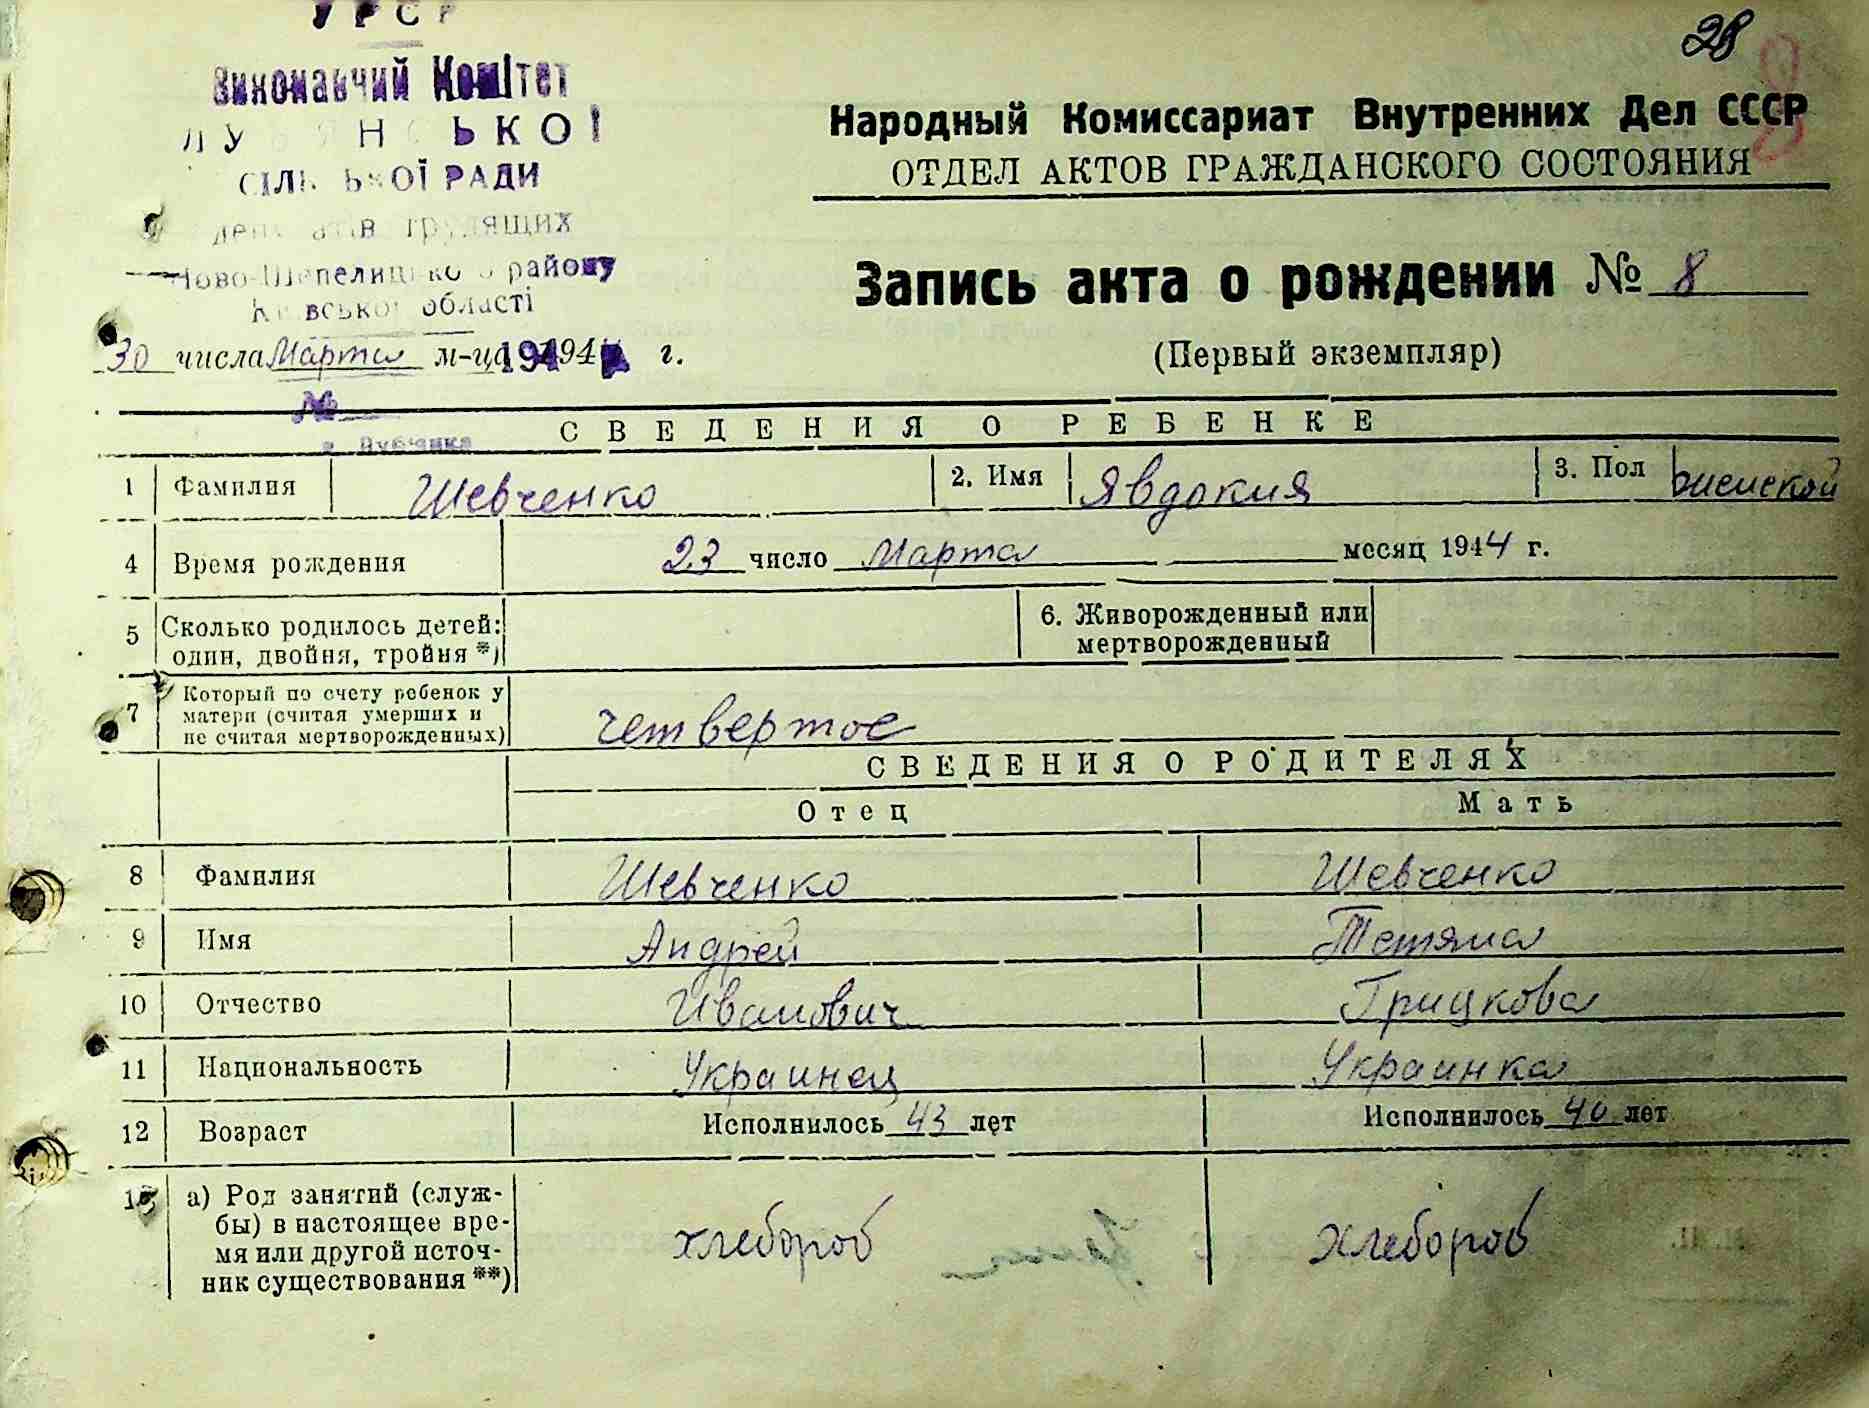 28
УРСР
Виконавчий Комітет
ЛУБ'ЯНСЬКОЇ
СІЛЬСЬКОЇ РАДИ
депутатів трудящих
Ново-Шепелицького району
Київської області
Народный Комиссариат Внутренних Дел СССР
ОТДЕЛ АКТОВ ГРАЖДАНСКОГО СОСТОЯНИЯ
Запись акта о рождении № 8
(Первый экземпляр)
30 числа Марта м-ца 1944 г.
№
с. Луб'янка
СВЕДЕНИЯ О РЕБЕНКЕ
1 Фамилия Шевченко 2. Имя Явдокия 3. Пол женской
4 Время рождения 23 число Марта месяц 1944 г.
5 Сколько родилось детей: один, двойня, тройня *) 6. Живорожденный или мертворожденный
7 Который по счету ребенок у матери (считая умерших и не считая мертворожденных) четвертое
СВЕДЕНИЯ О РОДИТЕЛЯХ
Отец Мать
8 Фамилия Шевченко Шевченко
9 Имя Андрей Тетяна
10 Отчество Иванович Грицкова
11 Национальность Украинец Украинка
12 Возраст Исполнилось 43 лет Исполнилось 40 лет
13 а) Род занятий (служ-
бы) в настоящее вре-
мя или другой источ-
ник существования **) хлебороб хлебороб